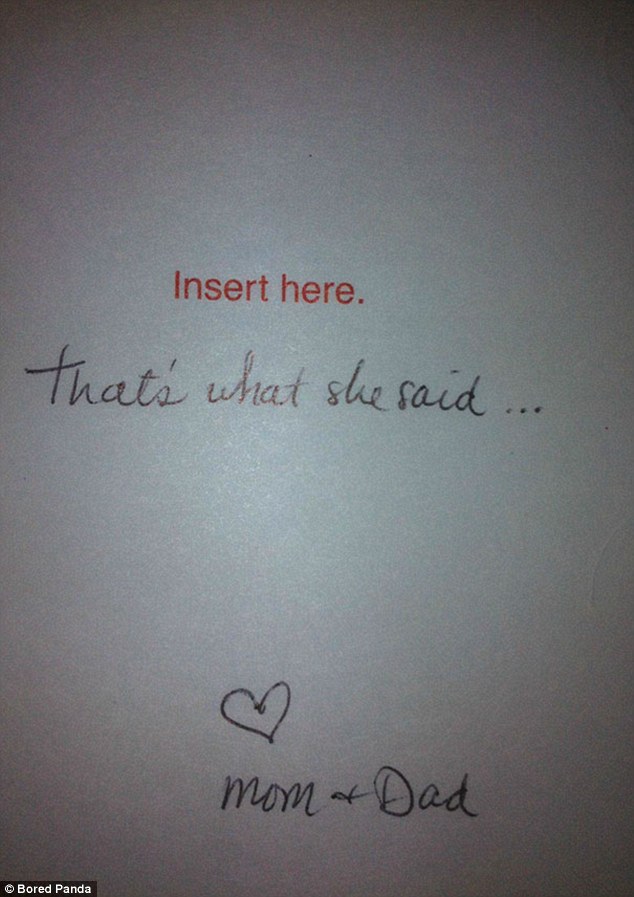 Insert here.
That's what she said...
mom + Dad
© Bored Panda